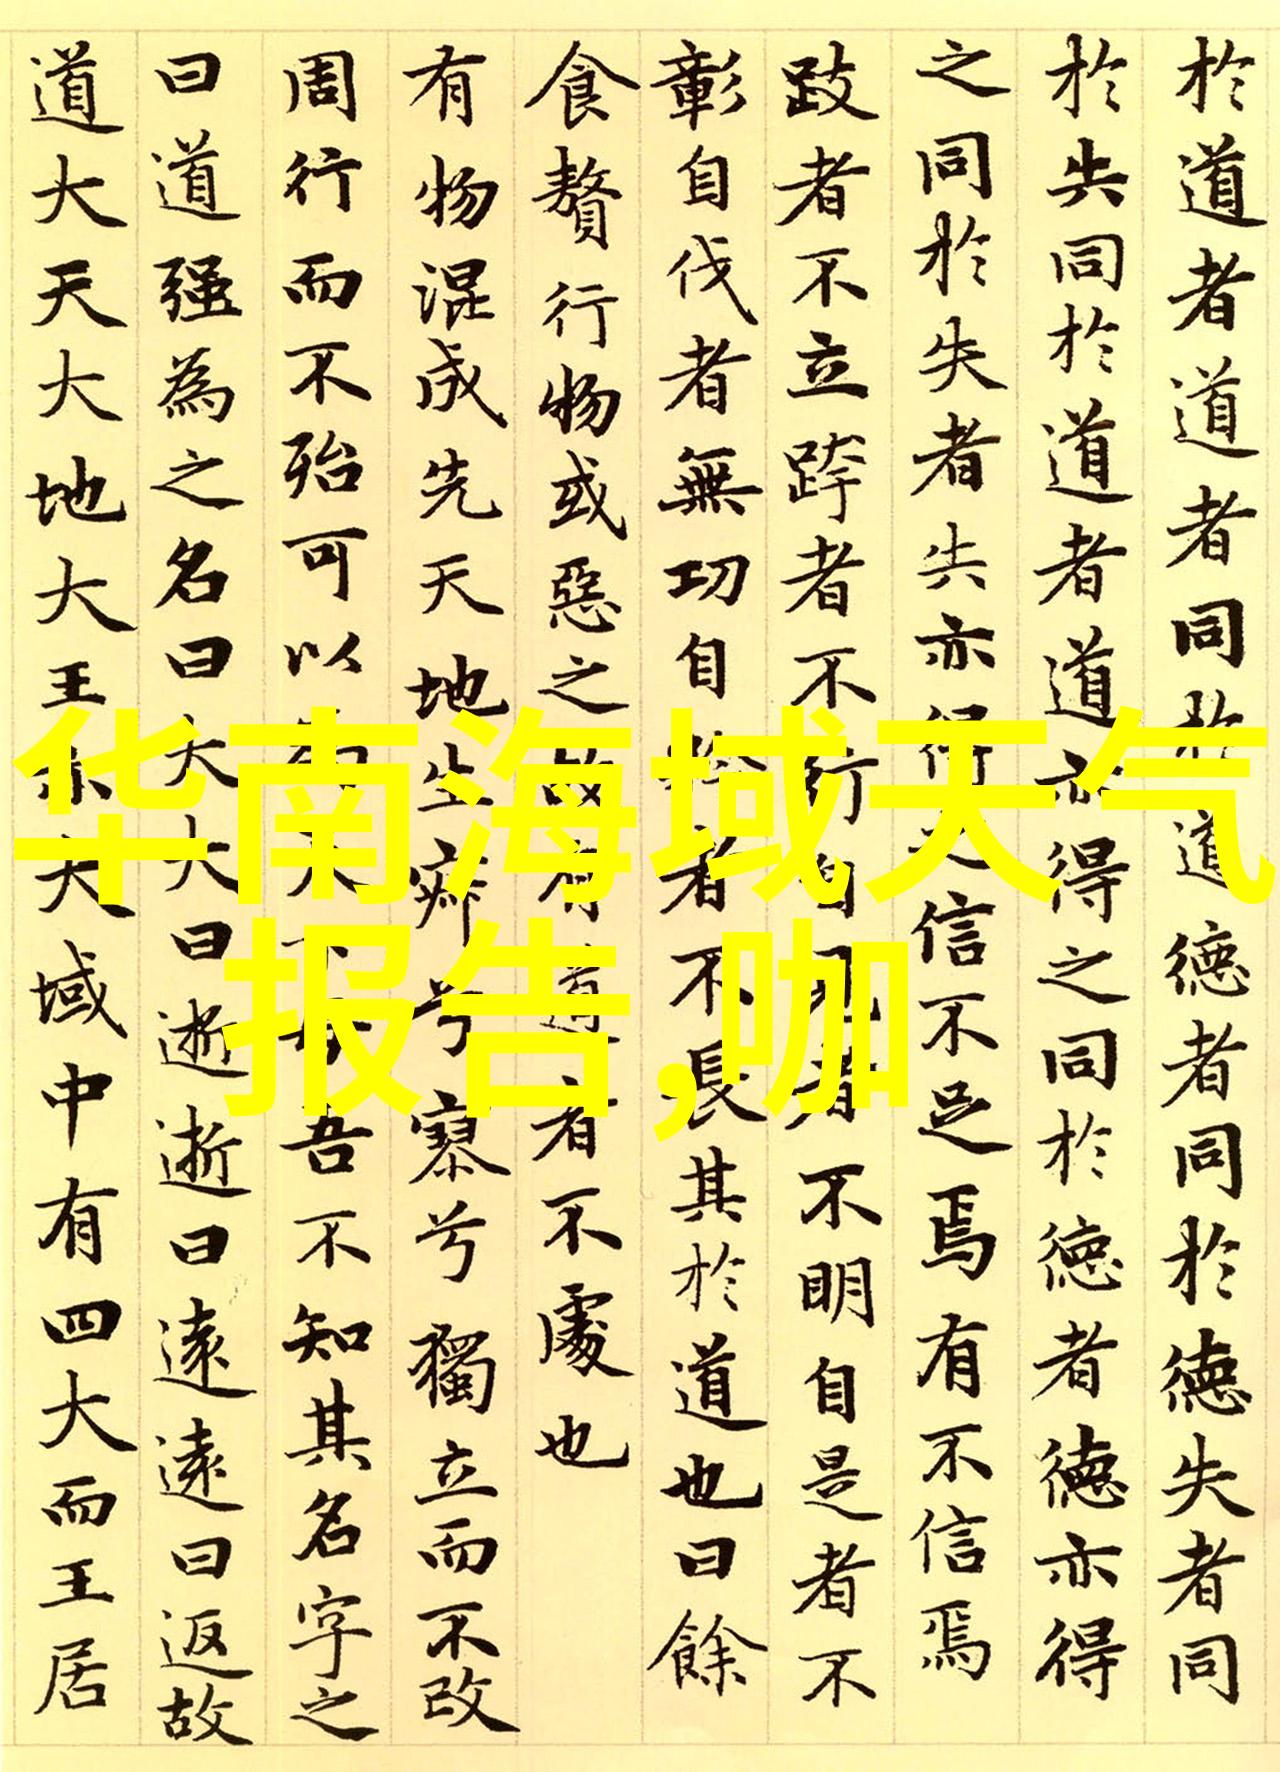 於道者道者同於道德者同於德失者同
於失同於道者道亦得之同於德者德亦得
之同於失者失亦得之信不足焉有不信焉
跂者不立跨者不行自見者不明自是者不
彰自伐者無功自矜者不長其於道也曰餘
食贅行物或惡之故有道者不處也
有物混成先天地生寂兮寥兮獨立而不改
周行而不殆可以為天下母吾不知其名字之
曰道强為之名曰大大曰逝逝曰遠遠曰返故
道大天大地大王亦大域中有四大而王居
华南海域天气
报告,咖